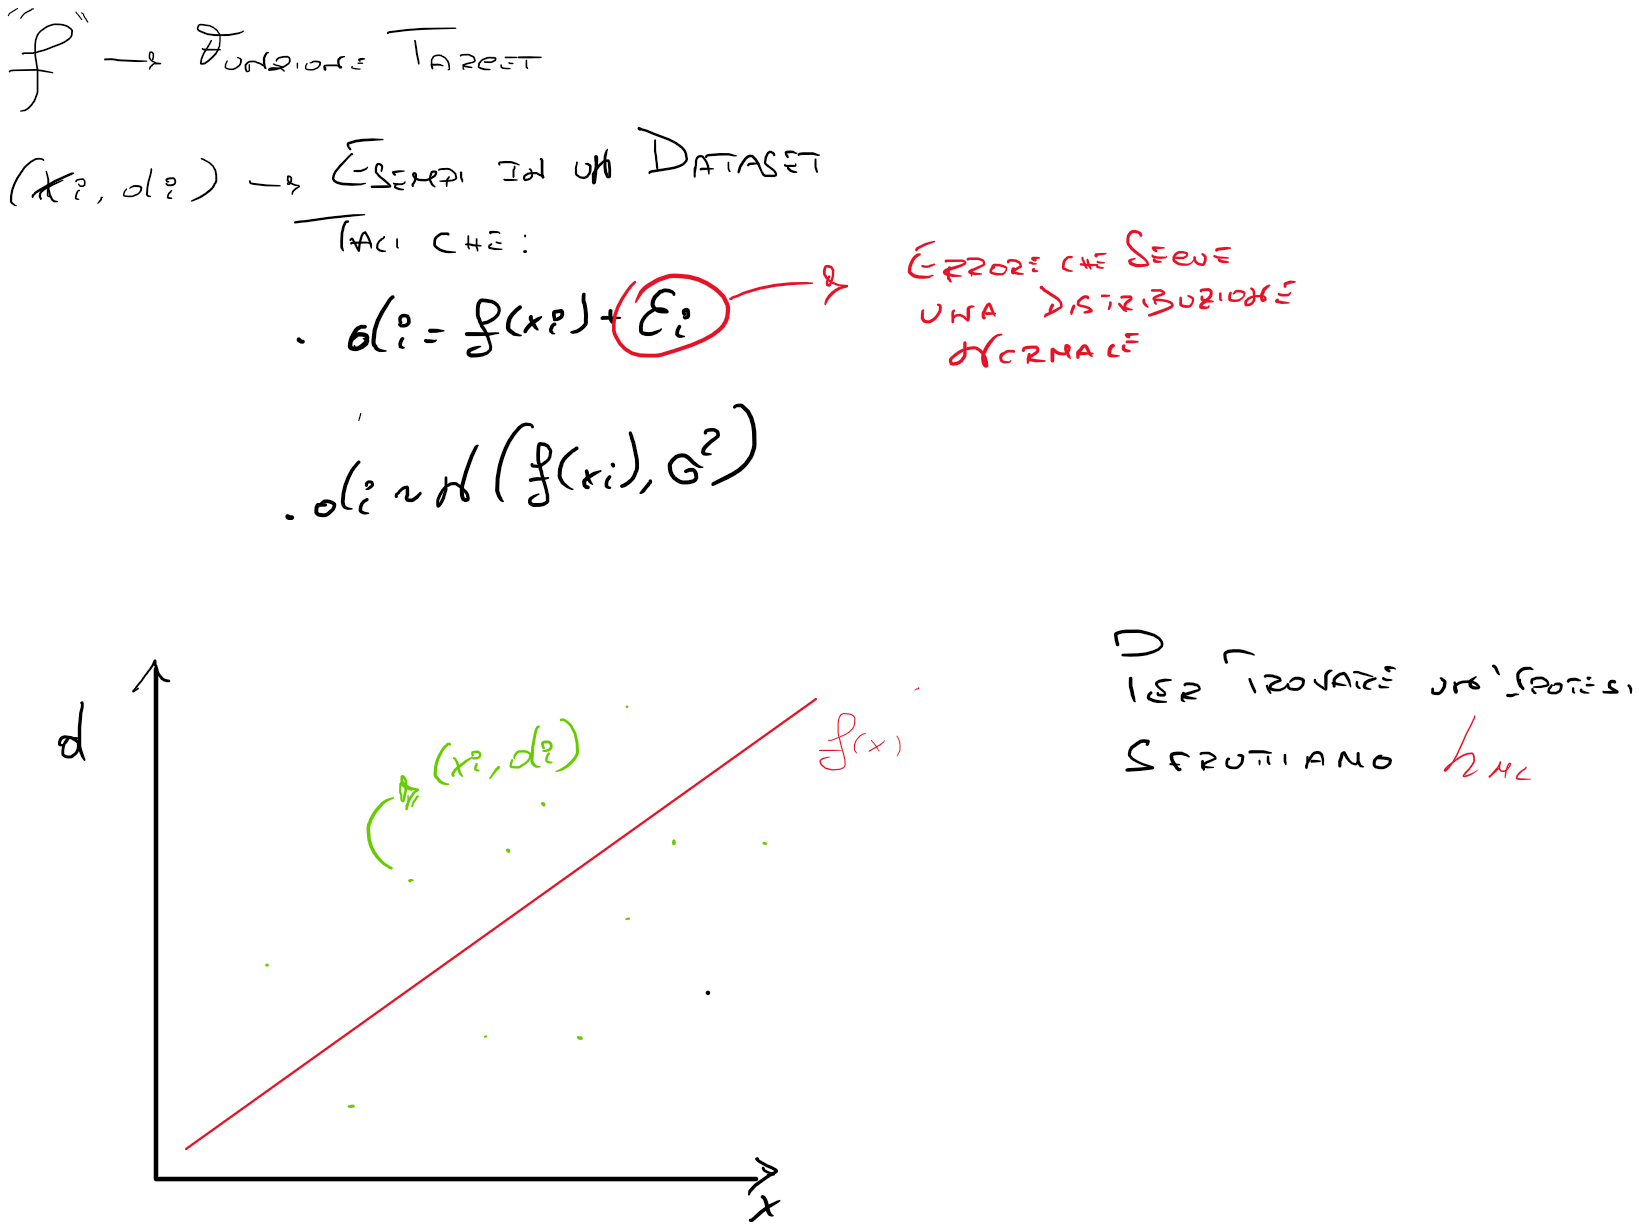 "f" → Funzione Target
(xi, di) → Esempi in un Dataset
Tali che:
. di = f(xi) + εi → Errore che segue
una distribuzione
normale
. di ~ N(f(xi), σ²)
Per trovare un'ipotesi
sfruttiamo hML
d
(xi, di)
f(x)
x